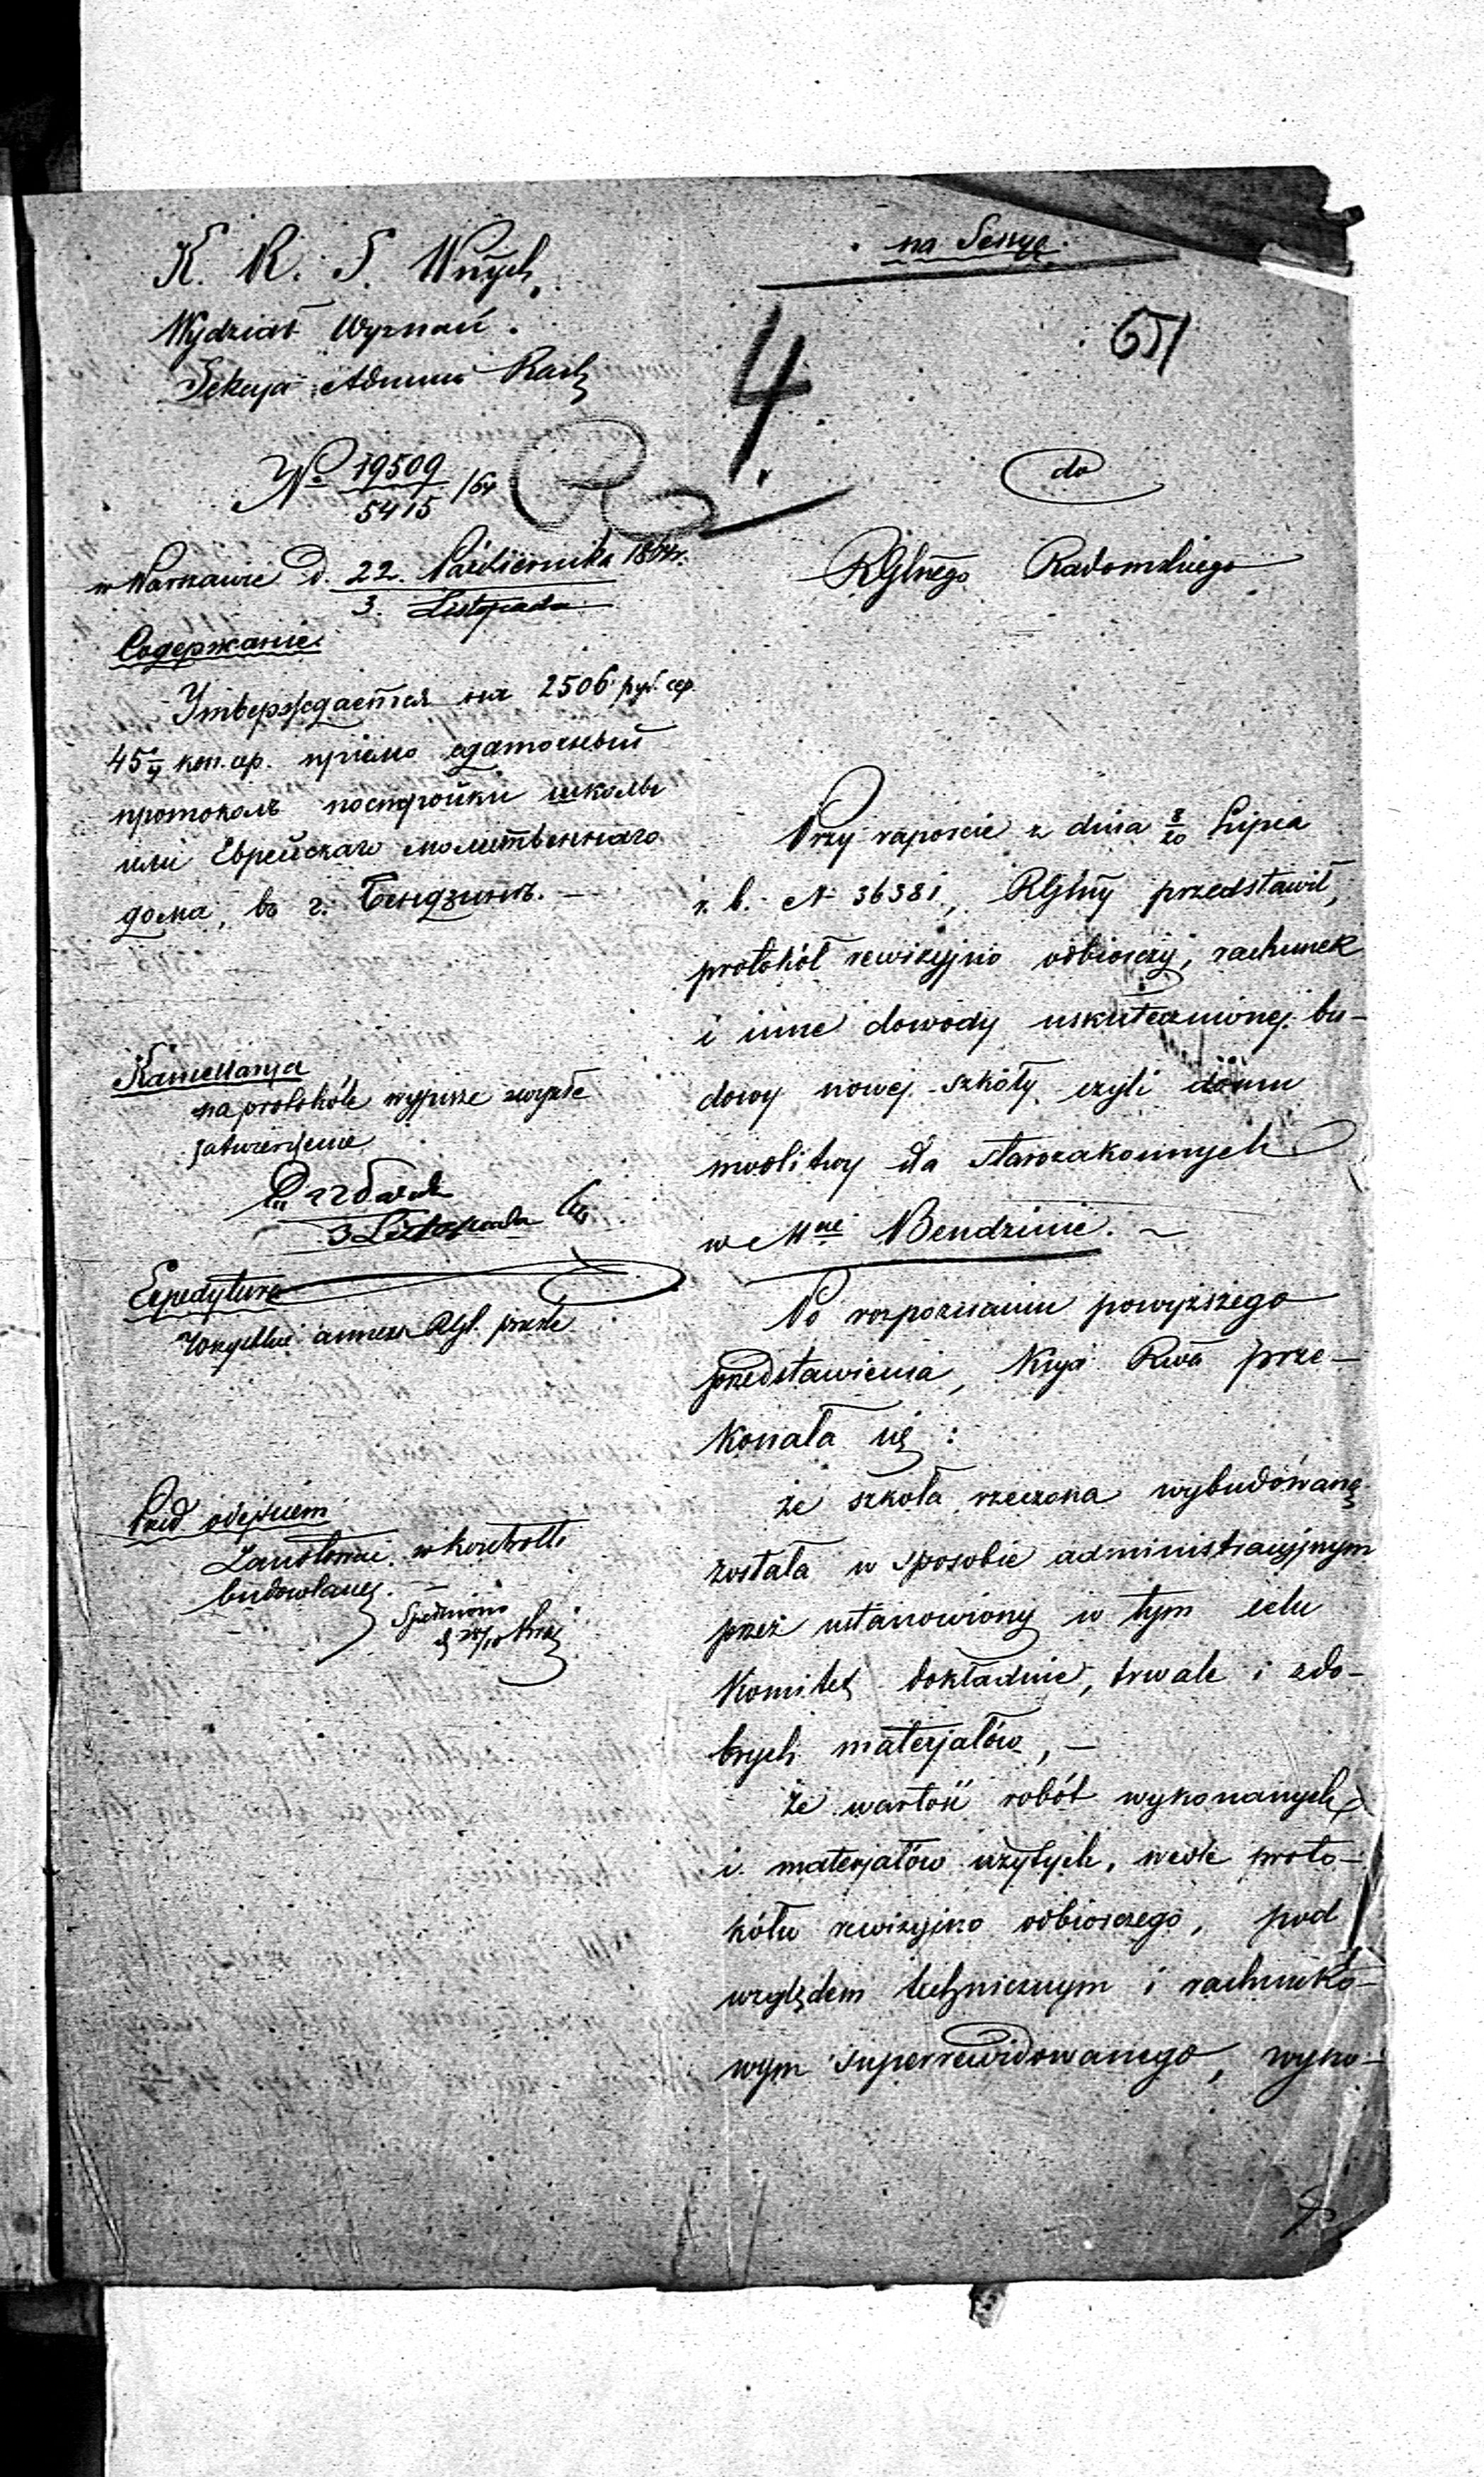 na Sessyę
K. R. S. Wnych.
Wydział Wyznań.
Sekcya Admin Rach
4.
651
№ 19509/5415 /64
do
RGlnego Radomskiego
w Warszawie d. 22. Października 1864r.
3. Listopada
Содержаніе.
Утверждается на 2506 руб. сер.
45 коп. сер. пріемо сдаточный
протоколъ постройки школы
или Еврейскаго молитвеннаго
дома, въ г. Бендзинѣ. —
Kancellarya
na protokóle wypisze zwykłe
zatwierdzenie
3 Listopada
Expedytura
wszystkie annexa RGl. prześle
Przed odejściem
Zanotować w kontrolli
budowlanej. —
Przy raporcie z dnia 8/20 Lipca
r. b. N 36381, RGlny przedstawił,
protokół rewizyjno odbiorczy, rachunek
i inne dowody uskutecznionej bu-
dowy nowej szkoły czyli domu
modlitwy dla starozakonnych
w Mcie Bendzinie. ~
Po rozpoznaniu powyższego
przedstawienia, Kssya Rwa prze-
konała się :
że szkoła rzeczona wybudowaną
została w sposobie administracyjnym
przez ustanowiony w tym celu
Komitet dokładnie, trwale i z do-
brych materjałów, —
że wartość robót wykonanych
i materjałów użytych, wedle proto-
kółu rewizyjno odbiorczego, pod
względem technicznym i rachunko-
wym superrewidowanego, wyno-